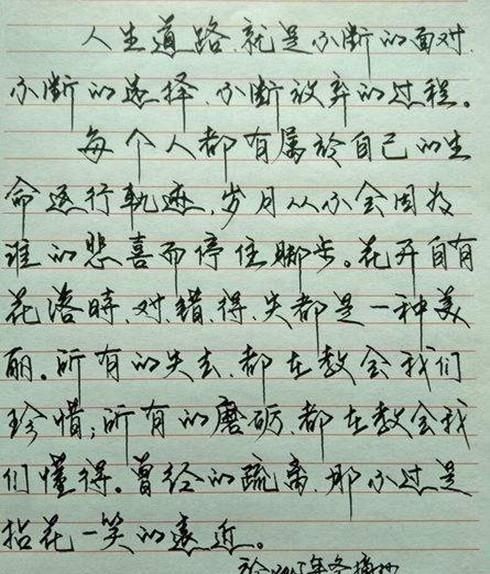 人生道路,就是不断的面对,
不断的选择,不断放弃的过程。
每个人都有属於自己的生
命运行轨迹,岁月从不会因为
谁的悲喜而停住脚步。花开自有
花落時,对,错,得,失都是一种美
丽。所有的失去,都在教会我们
珍惜;所有的磨砺,都在教会我
们懂得。曾经的疏离,那不过是
拈花一笑的远近。